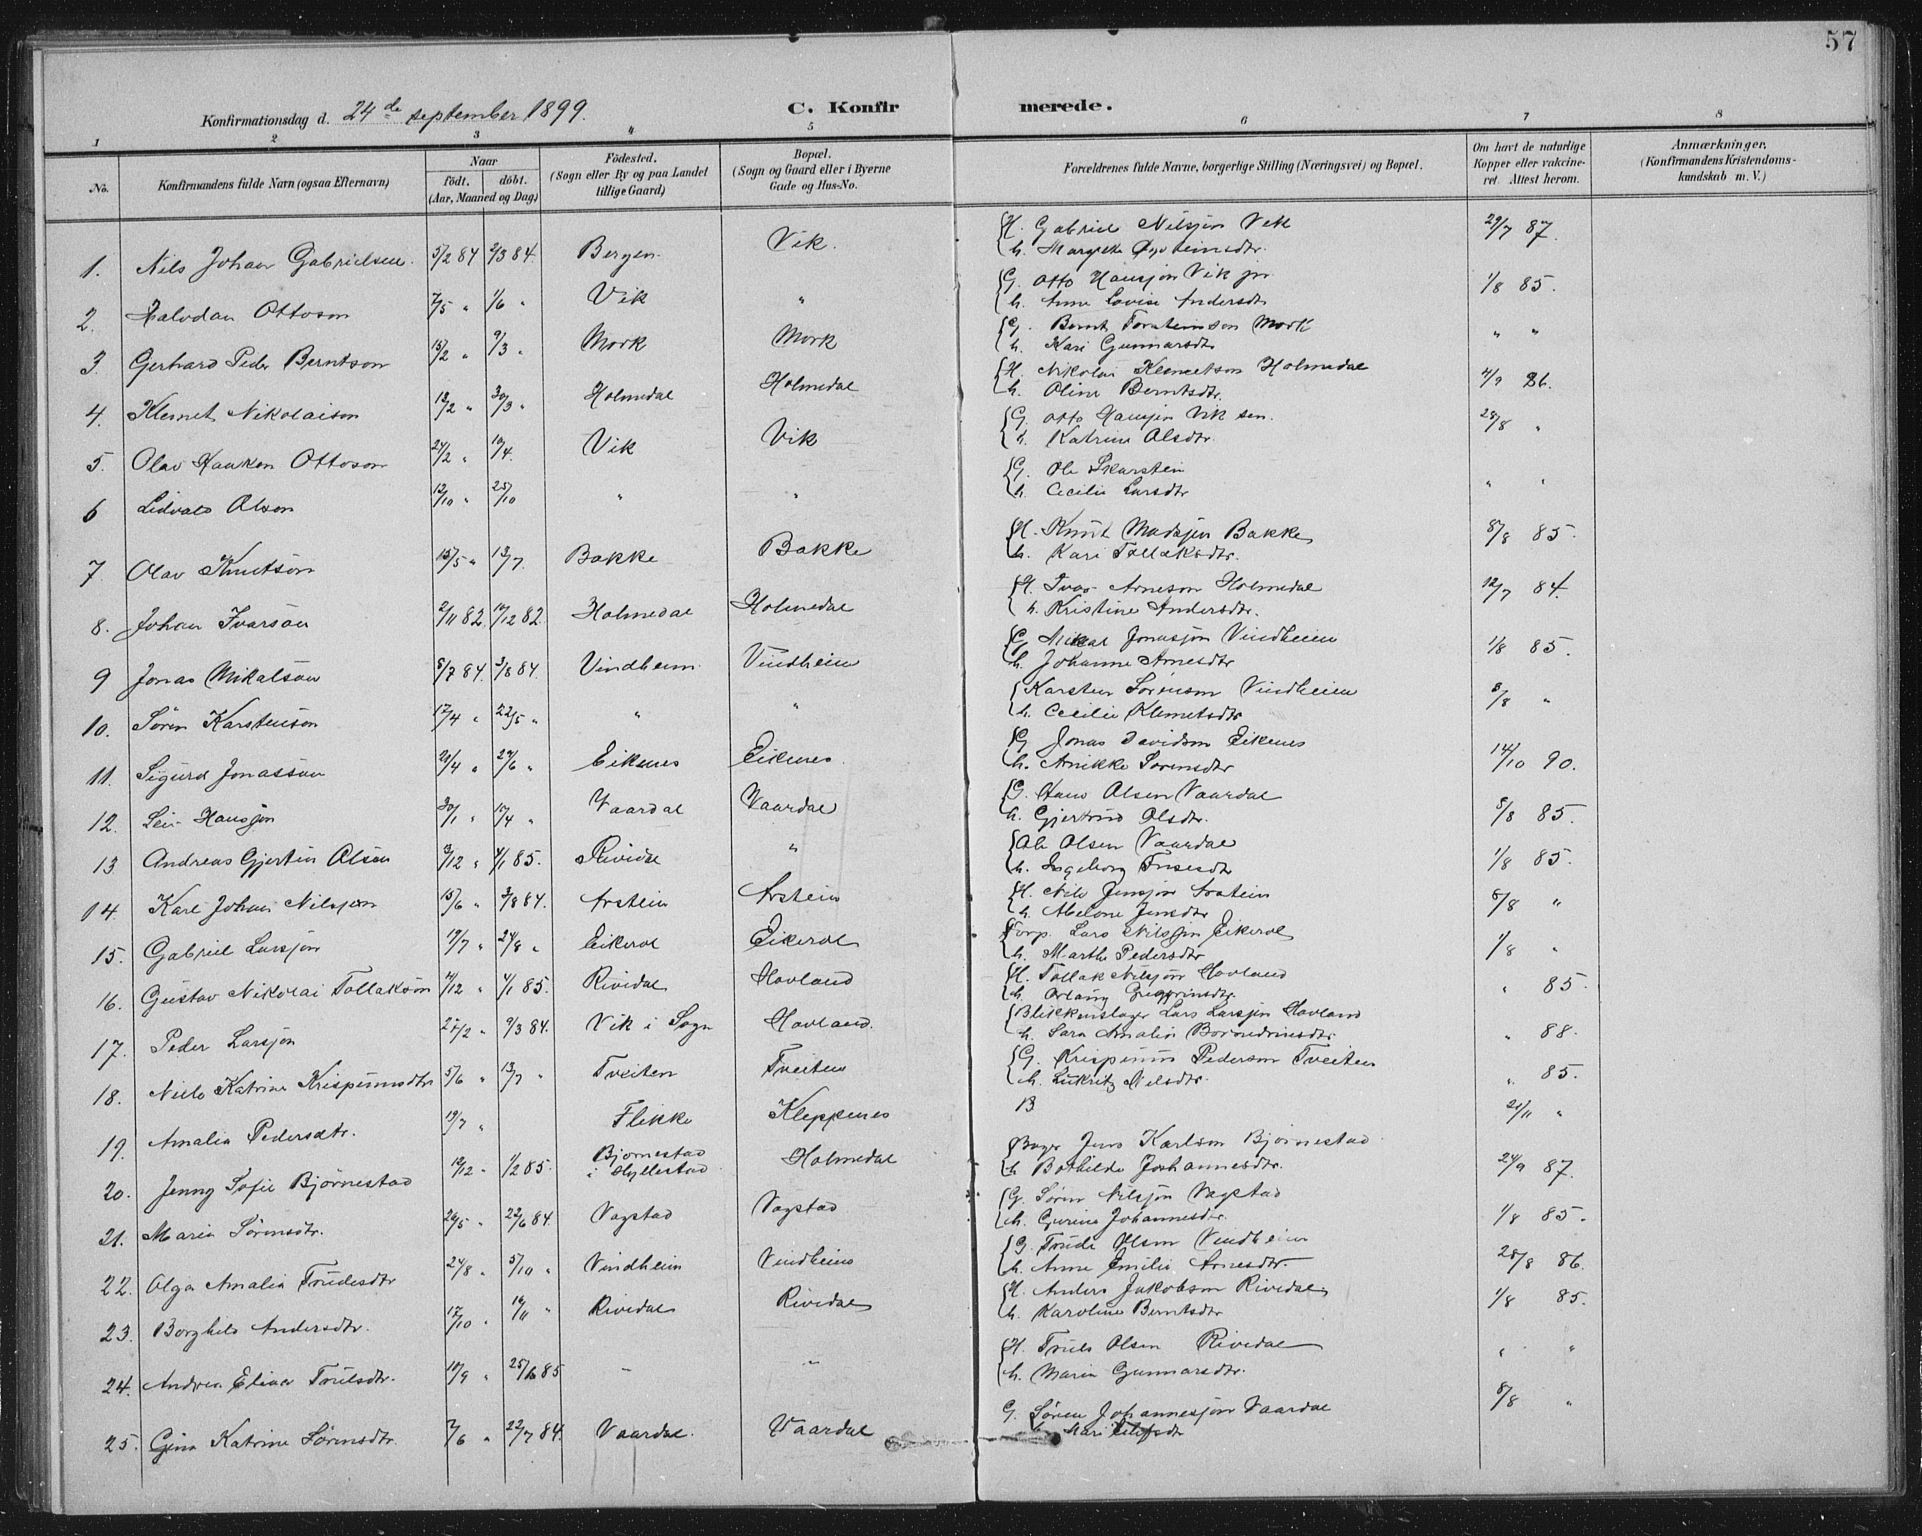 57
Konfirmationsdag d. 24de september 1899.
C. Konfirmerede.
1 2 3 4 5 6 7 8
No.
Konfirmandens fulde Navn (ogsaa Efternavn)
Naar
födt. döbt.
(Aar, Maaned og Dag)
Födested.
(Sogn eller By og paa Landet
tillige Gaard)
Bopæl.
(Sogn og Gaard eller i Byerne
Gade og Hus-No.
Forældrenes fulde Navne, borgerlige Stilling (Næringsvei) og Bopæl.
Om havt de naturlige
Kopper eller vakcine-
ret. Attest herom.
Anmærkninger.
(Konfirmandens Kristendoms-
kundskab m. V.)
1. Nils Johan Gabrielsen 5/2 84 2/3 84. Bergen. Vik. H. Gabriel Nilsjøn Vik 29/7 87.
h. Margrete
2. Halvdan Ottoson 7/5 " 1/6 " Vik " G. Otto Hansjøn Vik jn 1/8 85.
h. Anne Lovise Andersdtr
3. Gerhard Peder Berntson 15/2 " 9/3 " Mork Mork G. Bernt Torsteinson Mork " "
h. Kari Gunnarsdtr
4. Klemet Nikolaison 12/2 " 30/3 " Holmedal Holmedal H. Nikolai Klemetson Holmedal 4/9 86.
h. Oline Berntsdtr.
5. Olav Haaken Ottoson 24/2 " 10/4. Vik Vik G. Otto Hansjøn Vik sen. 28/8 "
h. Katrine Olsdtr.
6 Lidvald Olson 12/10 " 25/10 " " G. Ole Skarstein " "
h. Cecilie Larsdtr
7. Olav Knutson 15/5 " 13/7. Bakke Bakke H. Knut Madsjøn Bakke 8/8 85.
h. Kari Tollaksdtr.
8. Johan Ivarson 2/11 82. 10/12 82. Holmedal Holmedal H. Ivar Arneson Holmedal 12/7 84.
h. Kristine Andersdtr.
9 Jonas Mikalson 8/7 84. 3/8 84. Vindheim. Vindheim G. Mikal Jonasjøn Vindheim 1/8 85.
h. Johanne Arnesdtr
10. Søren Karstenson 17/4 " 22/5 " " " Karsten Sørenson Vindheim 8/8 "
h. Cecilie Klemetsdtr
11. Sigurd Jonasson 20/4 " 29/6 " Eikenes Eikenes. G. Jonas Davidson Eikenes 14/10 90.
h. Anikke Sørensdtr
12. Hansjøn 30/1 " 17/4 " Vaardal Vaardal G. Hans Olsen Vaardal 8/8 85.
h. Gjertrud Olsdtr.
13 Andreas Gjertin Olson 3/12 " 4/1 85. Rividal " Ole Olsen Vaardal 1/8 85.
h. Ingeborg
14. Karl Johan Nilsjøn 15/6 " 3/8 84. Arstein Arstein H. Nils Jensjøn Arstein 8/8 "
h. Abelone Jensdtr
15. Gabriel Larsjøn 19/7 " 24/8 " Eikerol Eikerol Torp. Lars Nilsjøn Eikerol 1/8 "
h. Marthe Pedersdtr
16. Gustav Nikolai Tollakson 11/12 " 4/1 85. Rividal Hovland H. Tollak Nilsjøn Hovland " 85.
h.
17. Peder Larsjøn 27/2 " 9/3 84. Vik i Sogn Hovland. Blikkenslager Lars Larsjøn Hovland " 88.
h. Sara Amalia
18. Nille Katrine Krispinusdtr 5/6 " 13/7 " Tveiten Tveiten G. Krispinus Pederson Tveiten " 85.
h. Lukritz Nilsdtr.
19. Amalia Pedersdtr. 19/7 " Flekke Kleppenes B 21/11 "
20. Jenny Sofie Bjørnestad 19/12 " 1/2 85. Bjørnestad
i Hyllestad Holmedal Jens Karlson Bjørnestad 24/9 87.
h. Bothilde Johannesdtr.
21. Maria Sørensdtr. 20/5 " 22/6 84. Vagstad Vagstad G. Søren Nilsjøn Vagstad 1/8 85.
h. Gurine Johannesdtr.
22. Olga Amalia Trudesdtr 24/8 " 5/10 " Vindheim Vindheim G. Trude Olsen Vindheim 28/8 86.
h. Anne Emilie Arnesdtr.
23. Borghild Andersdtr. 17/10 " 16/11 " Rividal Rividal H. Anders Jakobson Rividal 1/8 85.
h. Karoline Berntsdtr
24. Andrea Elina Trulsdtr. 10/9 " 85 " " H. Truls Olsen Rividal " "
h. Maria Gunnarsdtr.
25. Gina Katrine Sørensdtr. 7/6 " 22/7 84. Vaardal. Vaardal G. Søren Johannesjøn Vaardal 8/8 "
h. Mari